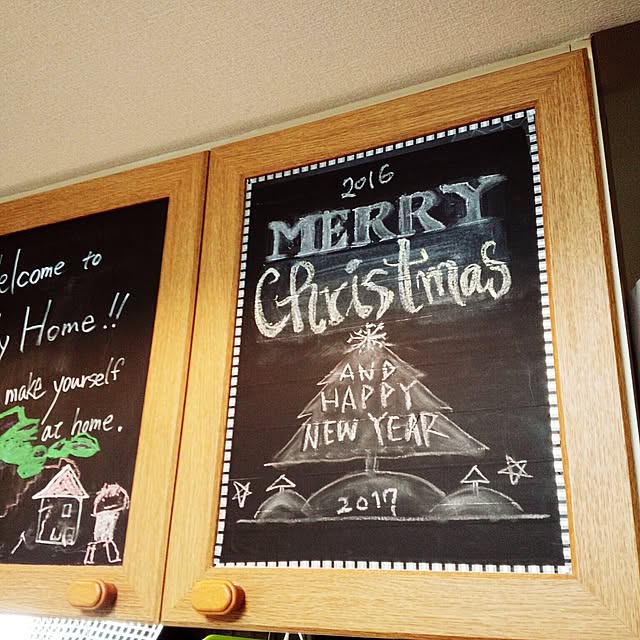 elcome to
y Home!!
make yourself
at home.
2016
MERRY
Christmas
AND
HAPPY
NEW YEAR
2017